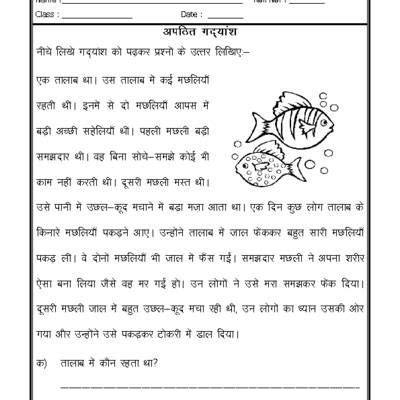 Class : Date :
अपठित गद्यांश
नीचे लिखे गद्यांश को पढ़कर प्रश्नो के उत्तर लिखिए:–
एक तालाब था। उस तालाब मे कई मछलियाँ
रहती थी। इनमे से दो मछलियाँ आपस में
बड़ी अच्छी सहेलियाँ थी। पहली मछली बड़ी
समझदार थी। वह बिना सोचे–समझे कोई भी
काम नहीं करती थी। दूसरी मछली मस्त थी।
उसे पानी में उछल–कूद मचाने में बड़ा मज़ा आता था। एक दिन कुछ लोग तालाब के
किनारे मछलियाँ पकड़ने आए। उन्होंने तालाब में जाल फेंककर बहुत सारी मछलियाँ
पकड़ ली। वे दोनों मछलियाँ भी जाल में फँस गईं। समझदार मछली ने अपना शरीर
ऐसा बना लिया जैसे वह मर गई हो। उन लोगों ने उसे मरा समझकर फेंक दिया।
दूसरी मछली जाल में बहुत उछल–कूद मचा रही थी, उन लोगों का ध्यान उसकी ओर
गया और उन्होंने उसे पकड़कर टोकरी में डाल दिया।
क) तालाब मे कौन रहता था?